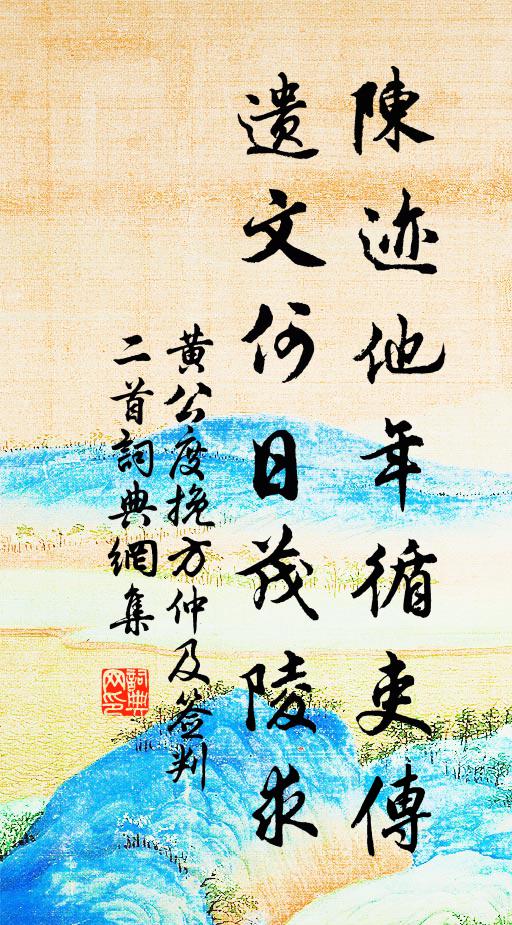 陳迹他年循吏傳
遺文何日茂陵求
黃公度挽方仲及簽判
二首詞典網集
詞典網印